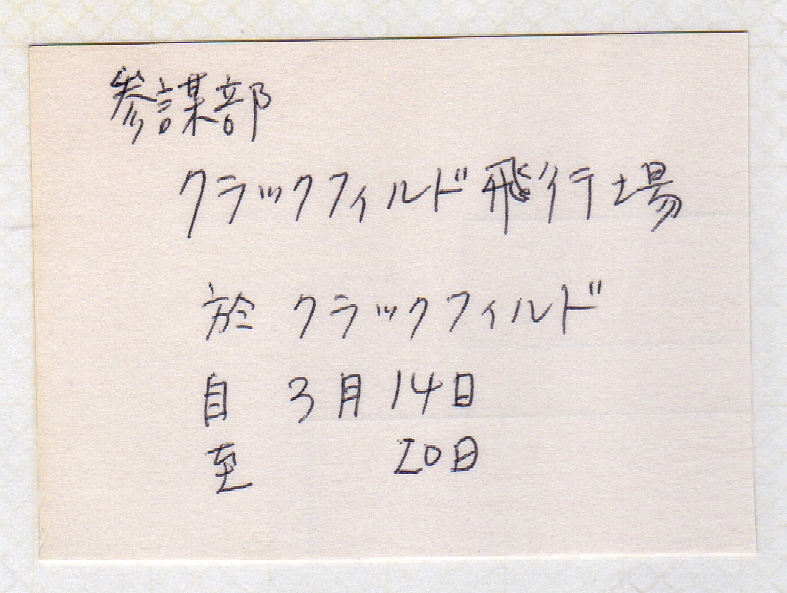 参謀部
クラックフィルド飛行場
於 クラックフィルド
自 3月14日
至 20日